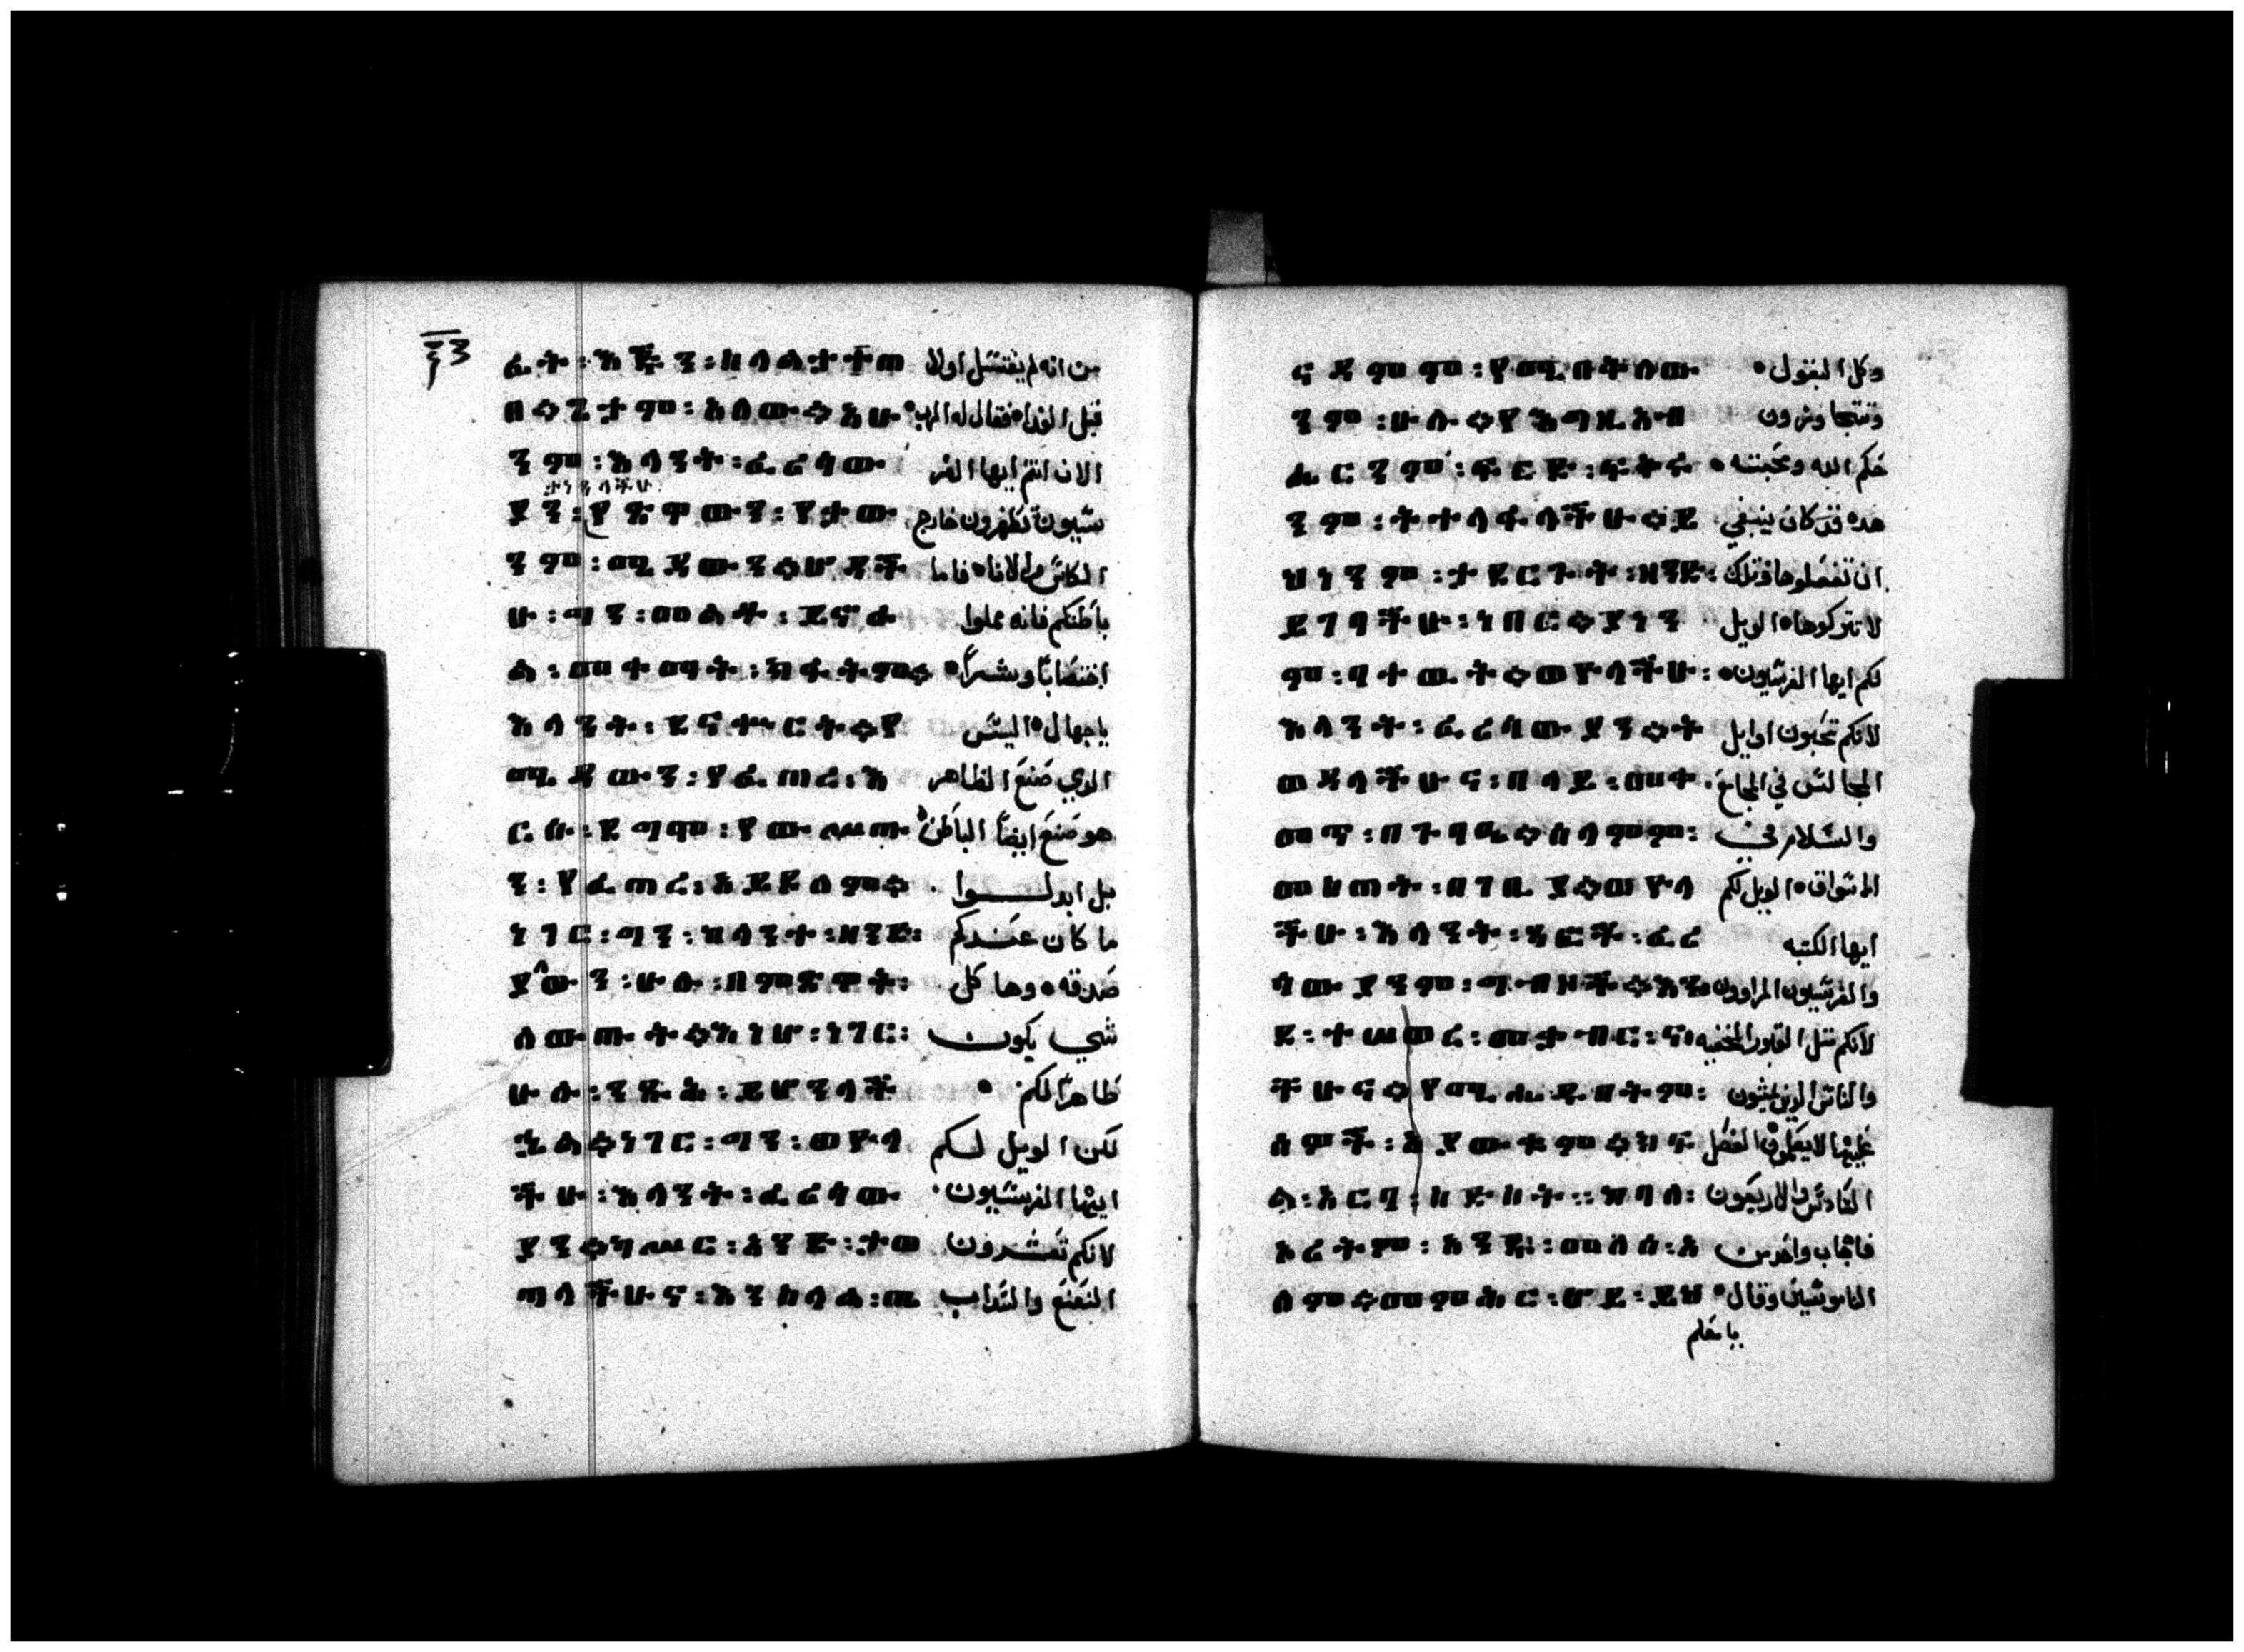 ፊት፡እጁን፡ من انه لم يغتسل اولا
አለው። قبل الغداء فقال له الرب
ንም፡እላንት፡ፈሪሳው الان انتم ايها الفر
ያን፡የጽዋውን፡ يسيون تطهرون خارج
ንም፡ሜዳውን። الكاس والانا فاما
ሁ፡ግን፡መልቶ፡ይኖራ باطنكم فانه مملوا
ል፡መቀማት፡ክፋትም። اغتصابا وشرا
እላንት፡ደናቍርት።የ يا جهال اليس
ሜዳውን፡የፈጠረ፡እ الدي صنع الظاهر
ርሱ፡ደግሞ፡የውስጡ هو صنع ايضا الباطن
ን፡የፈጠረ፡አይደለም። بل ابدلوا
ነገር፡ግን፡ከላንት፡ዘንድ፡ ما كان عندكم
ያለውን፡ሁሉ፡በምጽዋት፡ صدقه وها كل
ለውጡት።እነሆ፡ነገር፡ شي يكون
ሁሉ፡ንጹሕ፡ይሆንላች طاهرا لكم
ኋል።ነገር፡ግን፡ወዮላ لكن الويل لكم
ችሁ፡እላንት፡ፈሪሳው ايها الفريسيون
ያን።ካሥር፡አንድ፡ታወ لانكم تعشرون
ጣላችሁና፡እንከላል፡ጤ النعنع والسداب
ናዳምም፡የሚበቅለው وكل البقول
ንም፡ሁሉ።የእግዚአብ وتتجاوزون
ሔርንም፡ፍርድ፡ፍቅሩ حكم الله ومحبته
ንም፡ትተላልፋላችሁ።ይ هده قد كان ينبغي
ህንንም፡ታደርጉት፡ዘንድ፡ ان تفعلوها وتلك
ይገባችሁ፡ነበር።ያነን لا تتركوها الويل
ም፡ባተዉት።ወዮላችሁ፡ لكم ايها الفريسيون
እላንት፡ፈሪሳውያን።ት لانكم تحبون اوايل
ወዳላችሁና፡በላይ፡መቀ المجالس في المجامع
መጥ፡በጉባዔ።ሰላምም፡ والسلام في
በገቢያ።ወዮላ الاسواق الويل لكم
ችሁ፡እላንት፡ጻፎች፡ፈሪ ايها الكتبه
ሳውያንም፡ግብዞች።እን والفريسيون المراوون
ደ፡ተሠወረ፡መቃብር፡ና لانكم متل القبور المخفيه
ችሁና።የሚሔዱበትም፡ والناس الدين يمشون
ሰዎች፡አያውቀም።ክፍ عليها لا يعلمون الفصل
ል፡አርባ፡ والاربعون
አሪትም፡አንዱ፡መለሰ፡አ فاجاب واحد من
ለም።መምህር፡ሆይ፡ይህ الناموسيين وقال
يا معلم